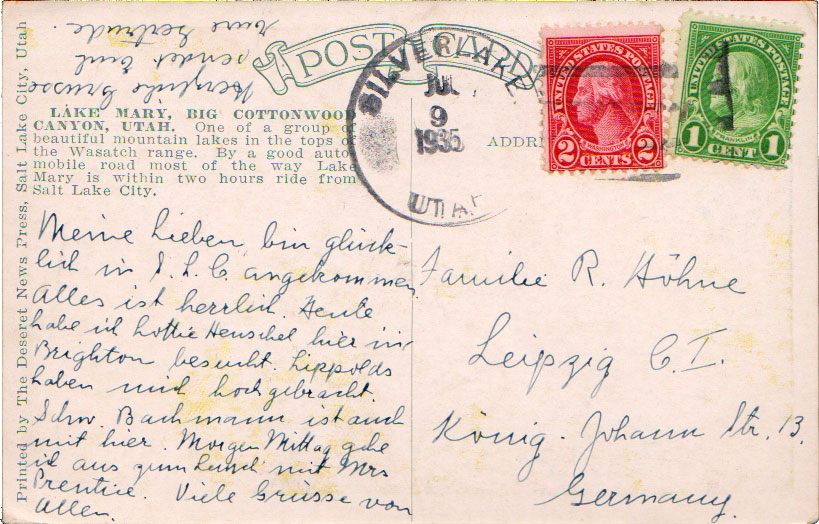 POST CARD
SILVERLAKE
JUL
9
1935
UTAH
UNITED STATES POSTAGE
WASHINGTON
2 CENTS 2
UNITED STATES POSTAGE
FRANKLIN
1 CENT 1
LAKE MARY, BIG COTTONWOOD
CANYON, UTAH. One of a group of
beautiful mountain lakes in the tops of
the Wasatch range. By a good auto-
mobile road most of the way Lake
Mary is within two hours ride from
Salt Lake City.
ADDR
Printed by The Deseret News Press, Salt Lake City, Utah
Meine Lieben bin glück-
lich in S. L. C angekommen.
Alles ist herrlich. Heute
habe ich Lottie Henschel hier in
Brighton besucht. Lippolds
haben mich hochgebracht.
Schw. Bachmann ist auch
mit hier. Morgen Mittag gehe
ich aus zum Lunch mit Mrs
Prentice. Viele Grüsse von
Allen.
Herzliche Grüsse
sendet Euch
Eure Gertrude
Familie R. Höhne
Leipzig C. I.
König. Johann Str. 13.
Germany.